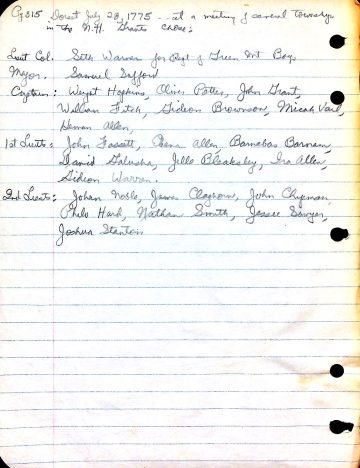 G315 Dorset July 28, 1775 -- at a meeting of several townships
in the N.H. Grants chose:
Lieut Col. Seth Warner for Regt of Green Mt Boys
Major. Samuel Safford
Captains: Weight Hopkins, Oliver Potter, John Grant,
William Fitch, Gideon Brownson, Micah Vail,
Heman Allen,
1st Lieuts: John Fassett, Ebena Allen, Barnabas Barnam,
David Galusha, Jille Bleaksley, Ira Allen,
Gideon Warren.
2nd Lieuts: Johan Noble, James Claghorn, John Chipman,
Philo Hard, Nathan Smith, Jessee Sawyer,
Joshua Stanton